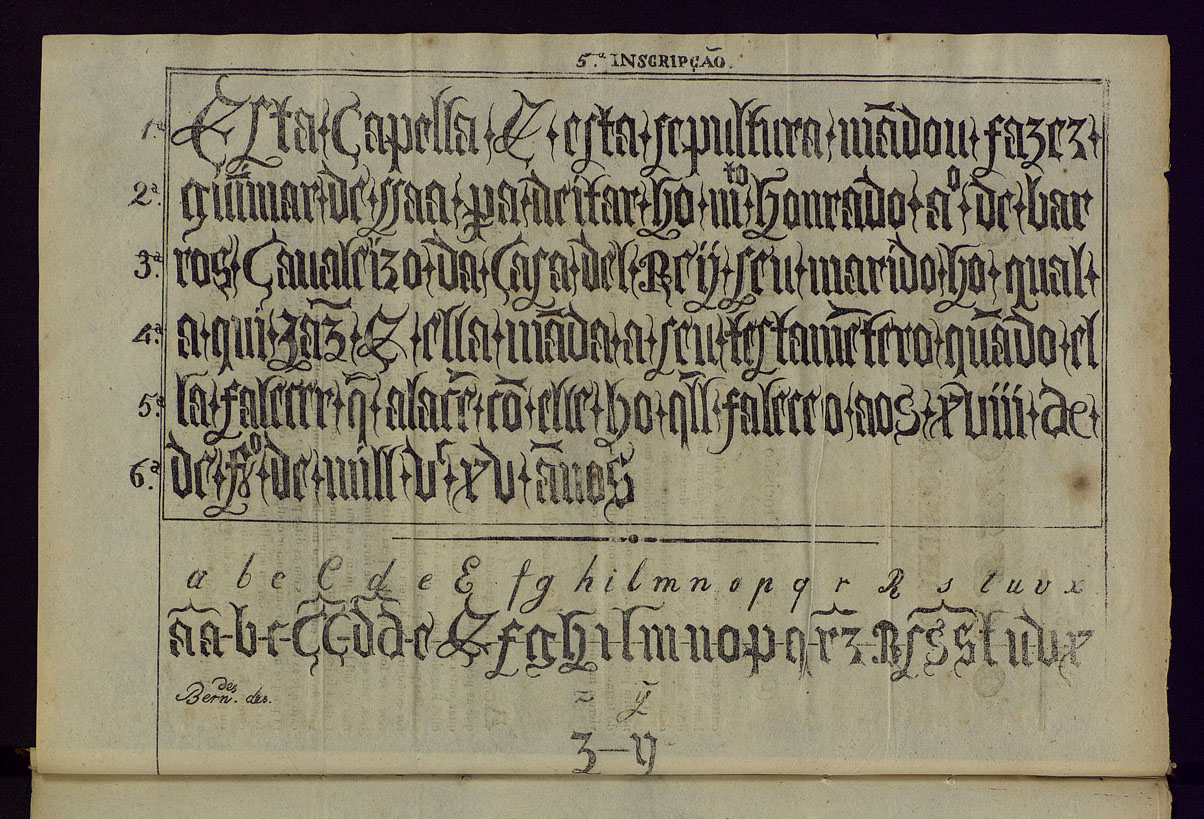 5.ª INSCRIPÇÃO.
1.ª Esta · Capella · E · esta · sepultura · mãdou · fazer ·
2.ª guimar · de · ssaa · pa · deitar · ho · m̃to · honrado · aº · de · bar
3.ª ros · Caualeizo · da · Casa · del · Rey · seu · marido · ho · qual ·
4.ª a · qui · Jaz̃ · E · ella · mãda · a · seu · testamẽtero · quãdo · el
5.ª la · falecer · q̃ · alacẽ · cõ · elle · ho · qll · faleceo · aos · xviiii · de ·
6.ª de · fº · de · mill · vᶜ · xv · ãnos
a b c C d e E f g h i l m n o p q r R s t u v x
ã a b c C C d d e E f g h i l m n o p q r z R ſ s S t u v x
Bern.des des.
z ÿ
z y